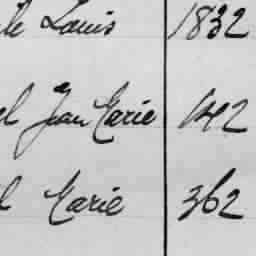 Louis 1832
Jean Marie 142
Marie 362